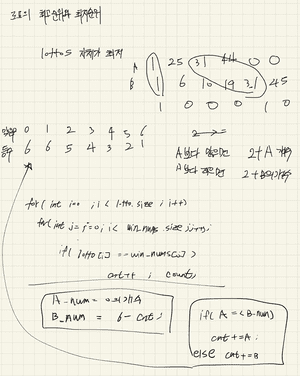 로또의 최고순위와 최저순위
lottos
A 1 25 31 44 0 0
B 1 6 10 19 31 45
1 0 0 0 1 0
0 1 2 3 4 5 6
등수 6 6 5 4 3 2 1
2
A보다
2+A
A보다
for( int i=0 ; i < lotto.size ; i++)
for( int j=0; i < win_nums size ; j++);
if( lotto[i] == win_nums[j])
cnt++ ; count;
A_num = 0의개수
B_num = 6 - cnt ;
if( A =< B-num)
cnt += A ;
else cnt += B